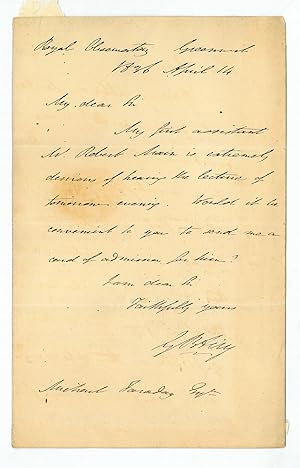 Royal Observatory Greenwich
1836 April 14
My dear Sir
My first assistant
Mr. Robert Main is extremely
desirous of hearing the lecture of
tomorrow evening. Would it be
convenient to you to send me a
card of admission for him?
I am dear Sir
Faithfully yours
G B Airy
Michael Faraday Esqre